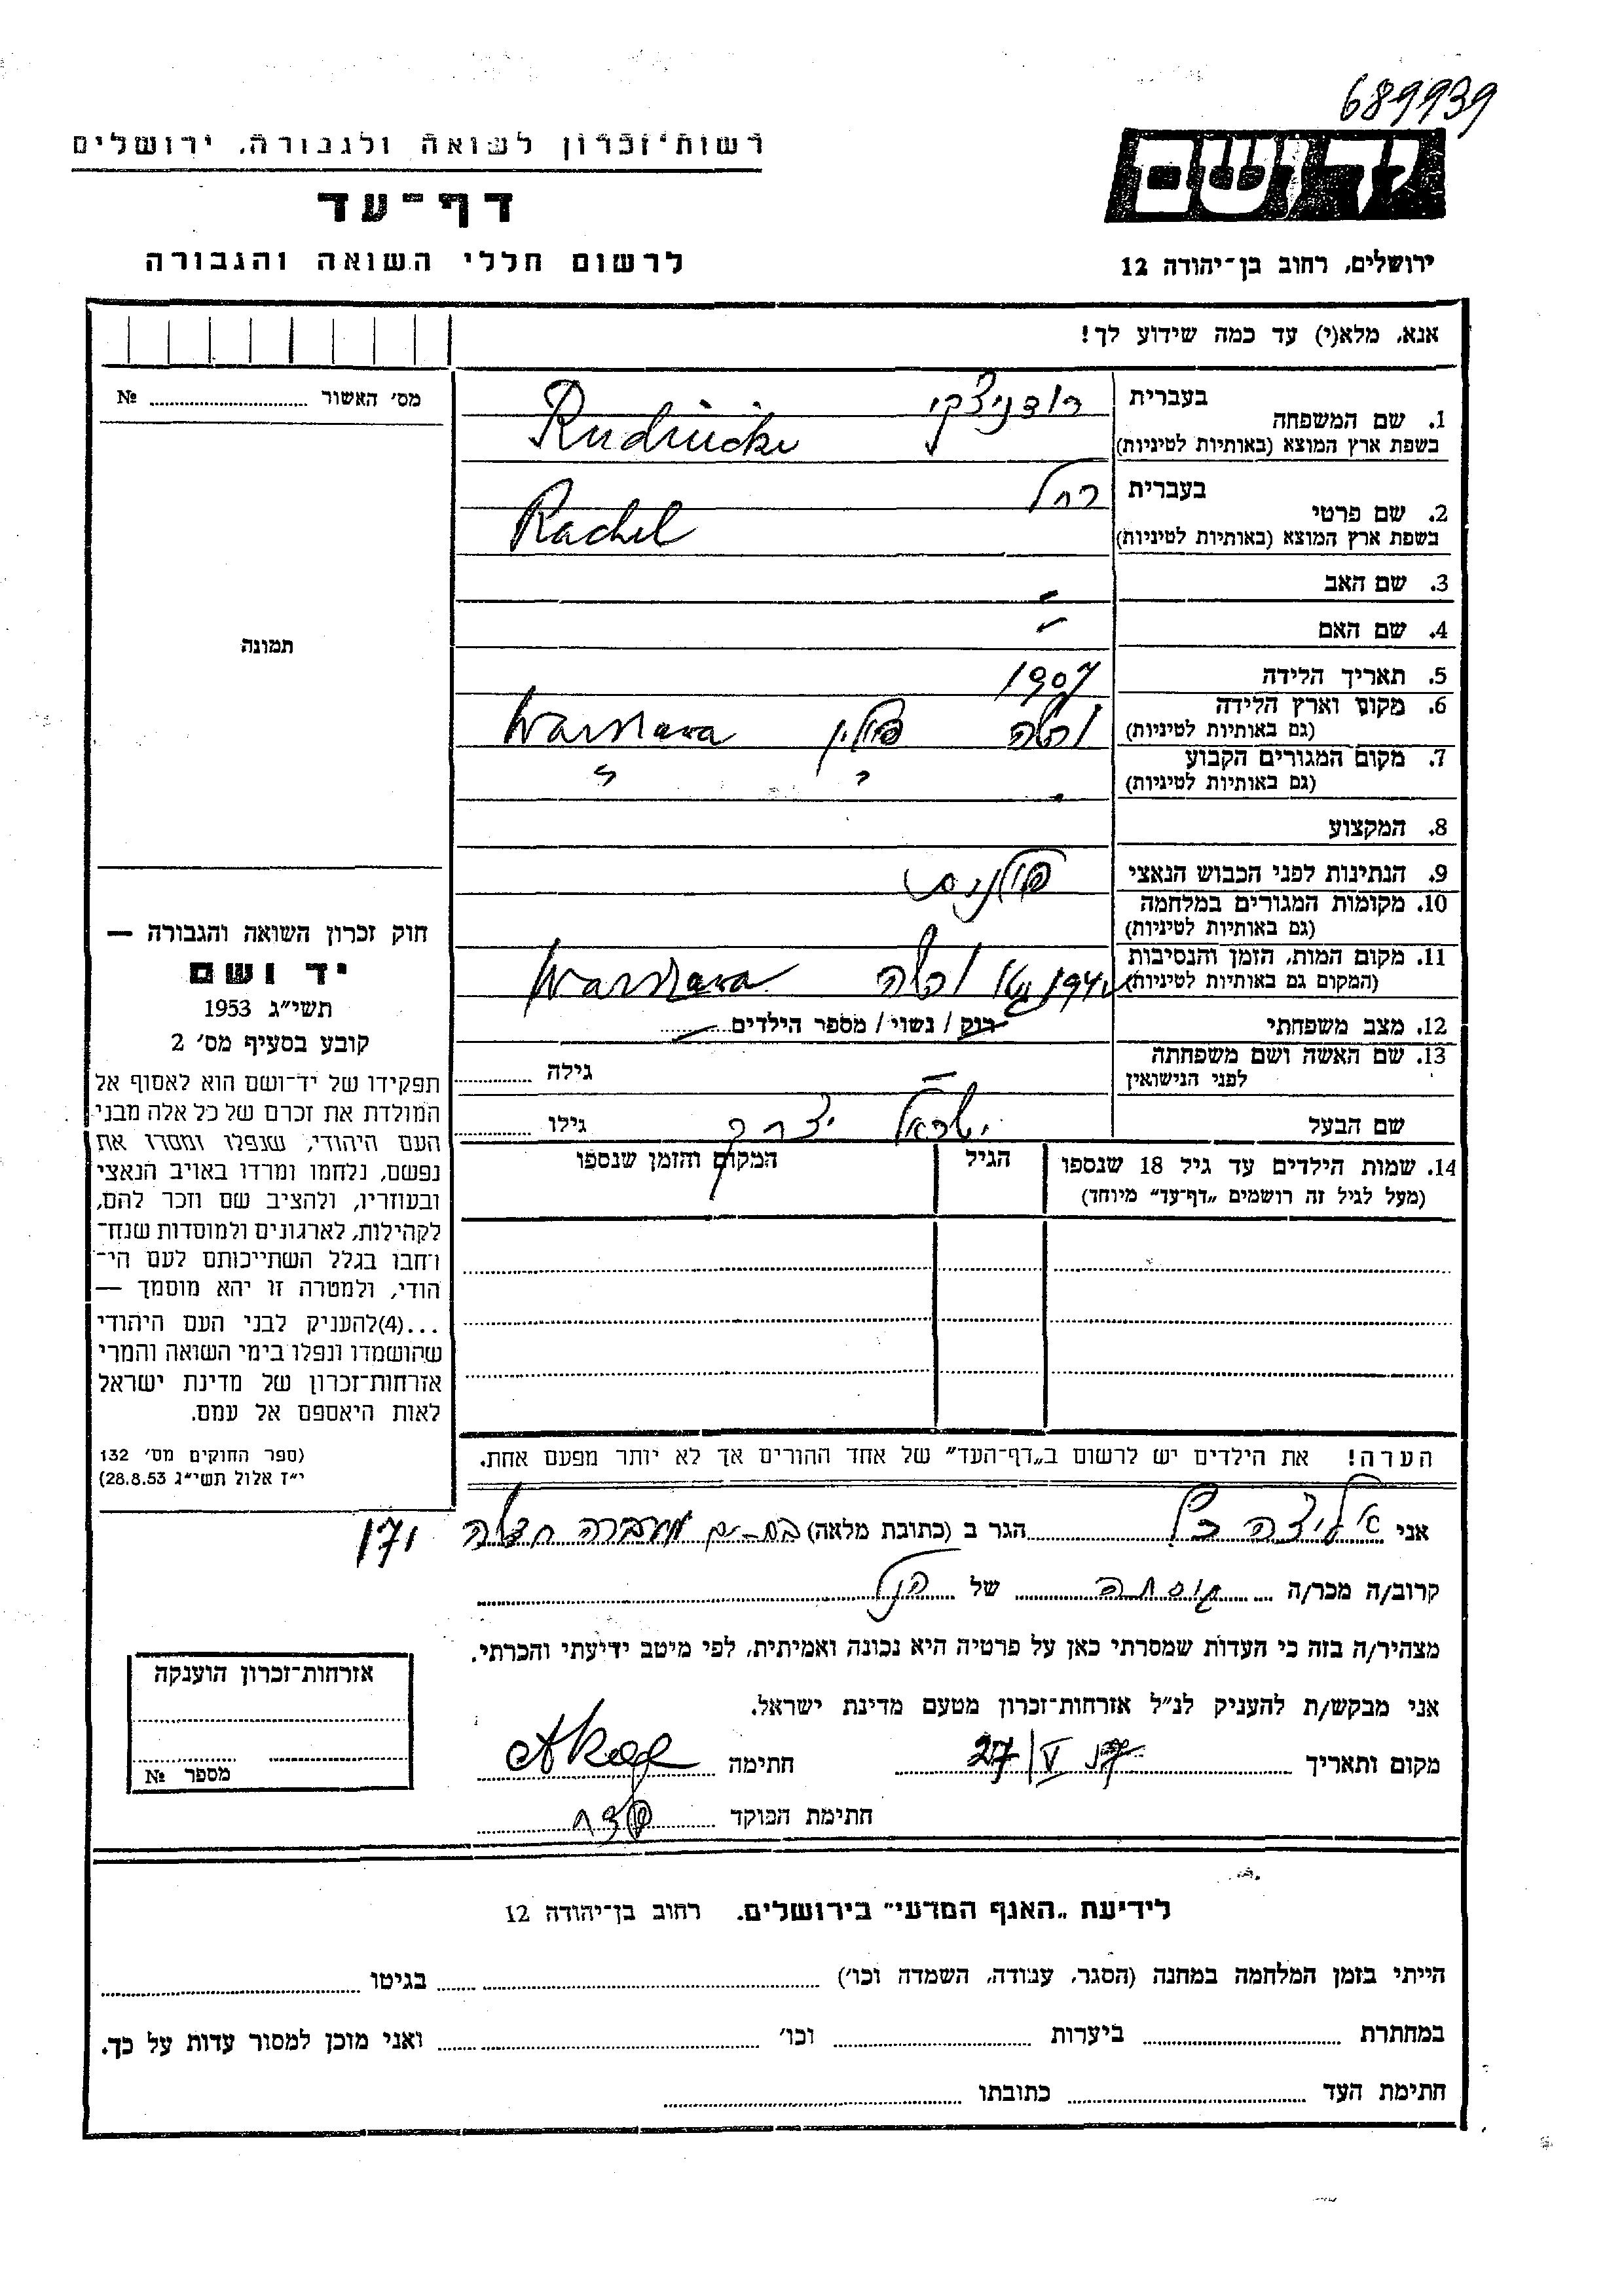 689939
רשות־זכרון לשואה ולגבורה, ירושלים
דף־עד
לרשום חללי השואה והגבורה
יד ושם
ירושלים, רחוב בן־יהודה 12
אנא, מלא(י) עד כמה שידוע לך!
מס׳ האשור № 
1. שם המשפחה
בעברית רודניצקי
בשפת ארץ המוצא (באותיות לטיניות) Rudnicki
2. שם פרטי
בעברית רחל
בשפת ארץ המוצא (באותיות לטיניות) Rachel
3. שם האב -
4. שם האם -
5. תאריך הלידה 1907
6. מקום וארץ הלידה ורשה פולין Warszawa
(גם באותיות לטיניות)
7. מקום המגורים הקבוע
(גם באותיות לטיניות)
8. המקצוע
9. הנתינות לפני הכבוש הנאצי פולנית
10. מקומות המגורים במלחמה
(גם באותיות לטיניות)
11. מקום המות, הזמן והנסיבות ורשה Warszawa
(המקום גם באותיות לטיניות)
12. מצב משפחתי רוק / נשוי / מספר הילדים
13. שם האשה ושם משפחתה
לפני הנישואין - גילה
שם הבעל ישראל יצחק גילו
14. שמות הילדים עד גיל 18 שנספו הגיל המקום והזמן שנספו
(מעל לגיל זה רושמים „דף־עד” מיוחד)
הערה! את הילדים יש לרשום ב„דף־העד” של אחד ההורים אך לא יותר מפעם אחת.
תמונה
חוק זכרון השואה והגבורה —
יד ושם
תשי״ג 1953
קובע בסעיף מס׳ 2
תפקידו של יד־ושם הוא לאסוף אל
המולדת את זכרם של כל אלה מבני
העם היהודי, שנפלו ומסרו את
נפשם, נלחמו ומרדו באויב הנאצי
ובעוזריו, ולהציב שם וזכר להם,
לקהילות, לארגונים ולמוסדות שנח־
רחבו בגלל השתייכותם לעם הי־
הודי, ולמטרה זו יהא מוסמך —
...(4)להעניק לבני העם היהודי
שהושמדו ונפלו בימי השואה והמרי
אזרחות־זכרון של מדינת ישראל
לאות היאספם אל עמם.
(ספר החוקים מס׳ 132
י״ז אלול תשי״ג 28.8.53)
אני הגר ב (כתובת מלאה) בת-ים מעברה 171
קרוב/ה מכר/ה של הנ״ל
מצהיר/ה בזה כי העדות שמסרתי כאן על פרטיה היא נכונה ואמיתית, לפי מיטב ידיעתי והכרתי.
אני מבקש/ת להעניק לנ״ל אזרחות־זכרון מטעם מדינת ישראל.
מקום ותאריך 27/V חתימה
חתימת הפוקד
אזרחות־זכרון הוענקה
מספר №
לידיעת „האגף המדעי” בירושלים. רחוב בן־יהודה 12
הייתי בזמן המלחמה במחנה (הסגר, עבודה, השמדה וכו׳) בגיטו
במחתרת ביערות וכו׳ ואני מוכן למסור עדות על כך.
חתימת העד כתובתו